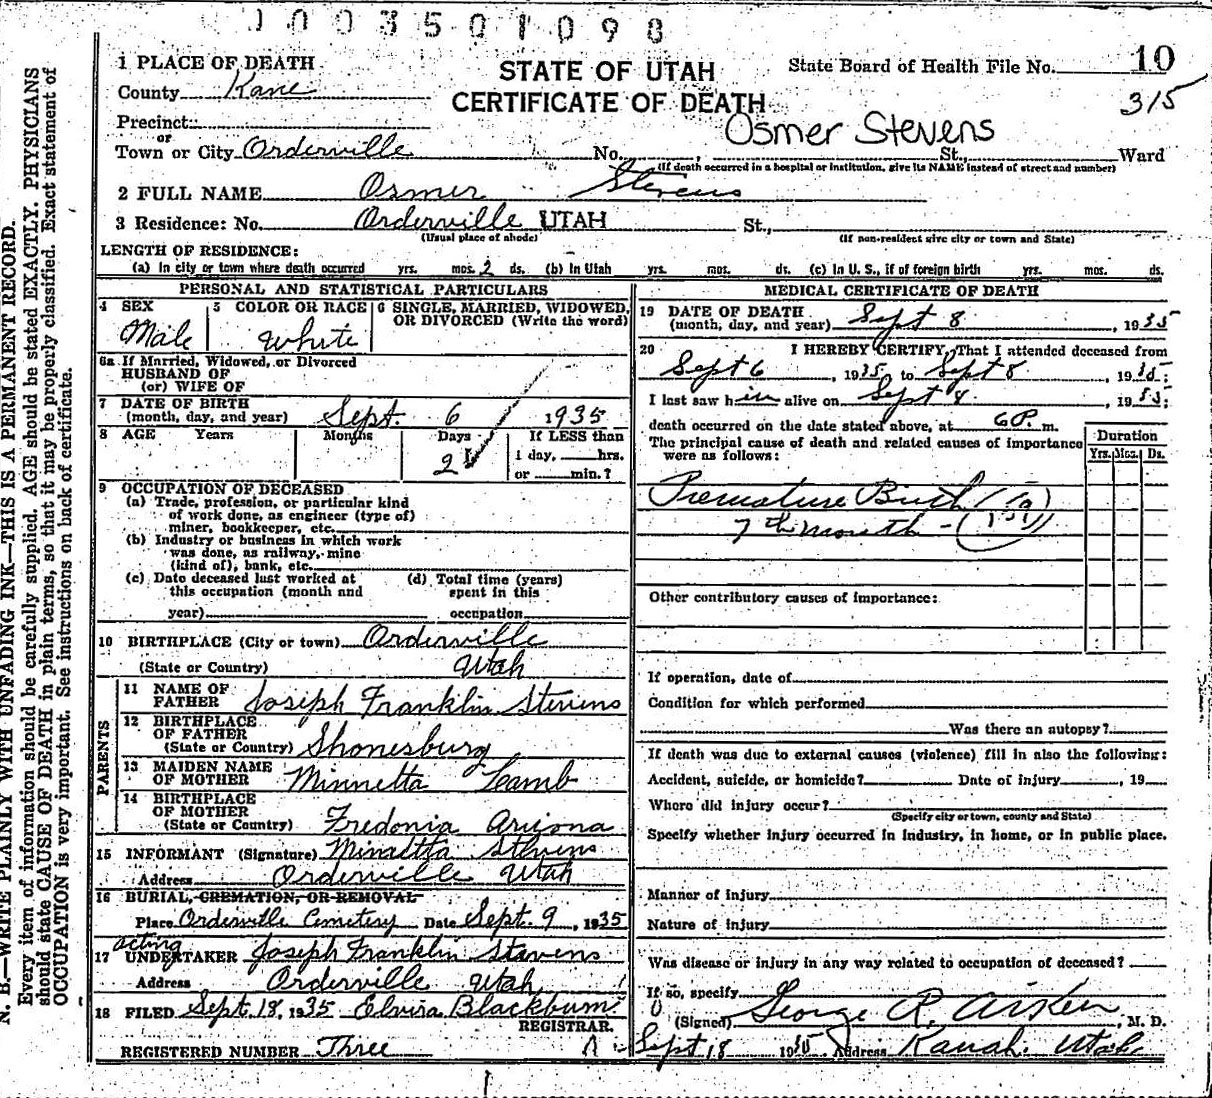 1003501098
1 PLACE OF DEATH
STATE OF UTAH
State Board of Health File No. 10
County Kane
CERTIFICATE OF DEATH
315
Precinct
Osmer Stevens
or
Town or City Orderville No. , St., Ward
(If death occurred in a hospital or institution, give its NAME instead of street and number)
2 FULL NAME Osmer Stevens
3 Residence: No. Orderville UTAH St.,
(Usual place of abode) (If non-resident give city or town and State)
LENGTH OF RESIDENCE:
(a) In city or town where death occurred yrs. mos. 2 ds. (b) In Utah yrs. mos. ds. (c) In U. S., if of foreign birth yrs. mos. ds.
PERSONAL AND STATISTICAL PARTICULARS
4 SEX 5 COLOR OR RACE 6 SINGLE, MARRIED, WIDOWED,
OR DIVORCED (Write the word)
Male White
6a If Married, Widowed, or Divorced
HUSBAND OF
(or) WIFE OF
7 DATE OF BIRTH
(month, day, and year) Sept. 6 1935
8 AGE Years Months Days If LESS than
2 1 day, hrs.
or min.?
9 OCCUPATION OF DECEASED
(a) Trade, profession, or particular kind
of work done, as engineer (type of)
miner, bookkeeper, etc.
(b) Industry or business in which work
was done, as railway, mine
(kind of), bank, etc.
(c) Date deceased last worked at (d) Total time (years)
this occupation (month and spent in this
year) occupation
10 BIRTHPLACE (City or town) Orderville
(State or Country) Utah
PARENTS
11 NAME OF
FATHER Joseph Franklin Stevens
12 BIRTHPLACE
OF FATHER
(State or Country) Shonesburg
13 MAIDEN NAME
OF MOTHER Minnetta Lamb
14 BIRTHPLACE
OF MOTHER
(State or Country) Fredonia Arizona
15 INFORMANT (Signature) Minnetta Stevens
Address Orderville Utah
16 BURIAL, CREMATION, OR REMOVAL
Place Orderville Cemetery Date Sept. 9, 1935
acting
17 UNDERTAKER Joseph Franklin Stevens
Address Orderville Utah
18 FILED Sept. 18, 1935 Elvira Blackburn
REGISTRAR.
REGISTERED NUMBER Three
MEDICAL CERTIFICATE OF DEATH
19 DATE OF DEATH
(month, day, and year) Sept 8, 1935
20 I HEREBY CERTIFY, That I attended deceased from
Sept 6, 1935 to Sept 8, 1935;
I last saw him alive on Sept 8, 1935;
death occurred on the date stated above, at 6 P. m.
The principal cause of death and related causes of importance
were as follows:
Duration
Yrs. Mos. Ds.
Premature Birth
7th month - (159)
Other contributory causes of importance:
If operation, date of
Condition for which performed
Was there an autopsy?
If death was due to external causes (violence) fill in also the following:
Accident, suicide, or homicide? Date of injury , 19
Where did injury occur?
(Specify city or town, county and State)
Specify whether injury occurred in industry, in home, or in public place.
Manner of injury
Nature of injury
Was disease or injury in any way related to occupation of deceased?
If so, specify
(Signed) George R. Aiken, M. D.
Sept 18 1935 Address Kanab. Utah
N. B.—WRITE PLAINLY WITH UNFADING INK—THIS IS A PERMANENT RECORD.
Every item of information should be carefully supplied. AGE should be stated EXACTLY. PHYSICIANS
should state CAUSE OF DEATH in plain terms, so that it may be properly classified. Exact statement of
OCCUPATION is very important. See instructions on back of certificate.